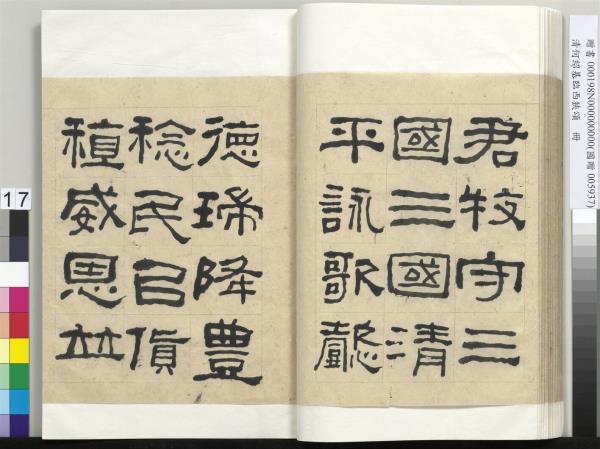 贈書 000198N000000000(國贈 005937)
清何紹基臨西狹頌 冊
君牧守三
國三國清
平詠歌懿
德瑞降豊
稔民㠯貨
稙威恩竝
17